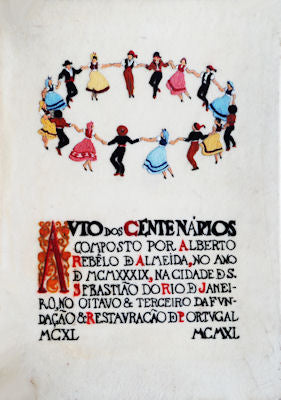 AVTO DOS CENTENÁRIOS
COMPOSTO POR ALBERTO
REBÊLO D ALMEIDA, NO ANO
D MCMXXXIX, NA CIDADE D S.
SEBASTIÃO DO RIO D JANEI-
RO, NO OITAVO & TERCEIRO DA FVN-
DAÇÃO & RESTAVRAÇÃO D PORTVGAL
MCXL MCMXL